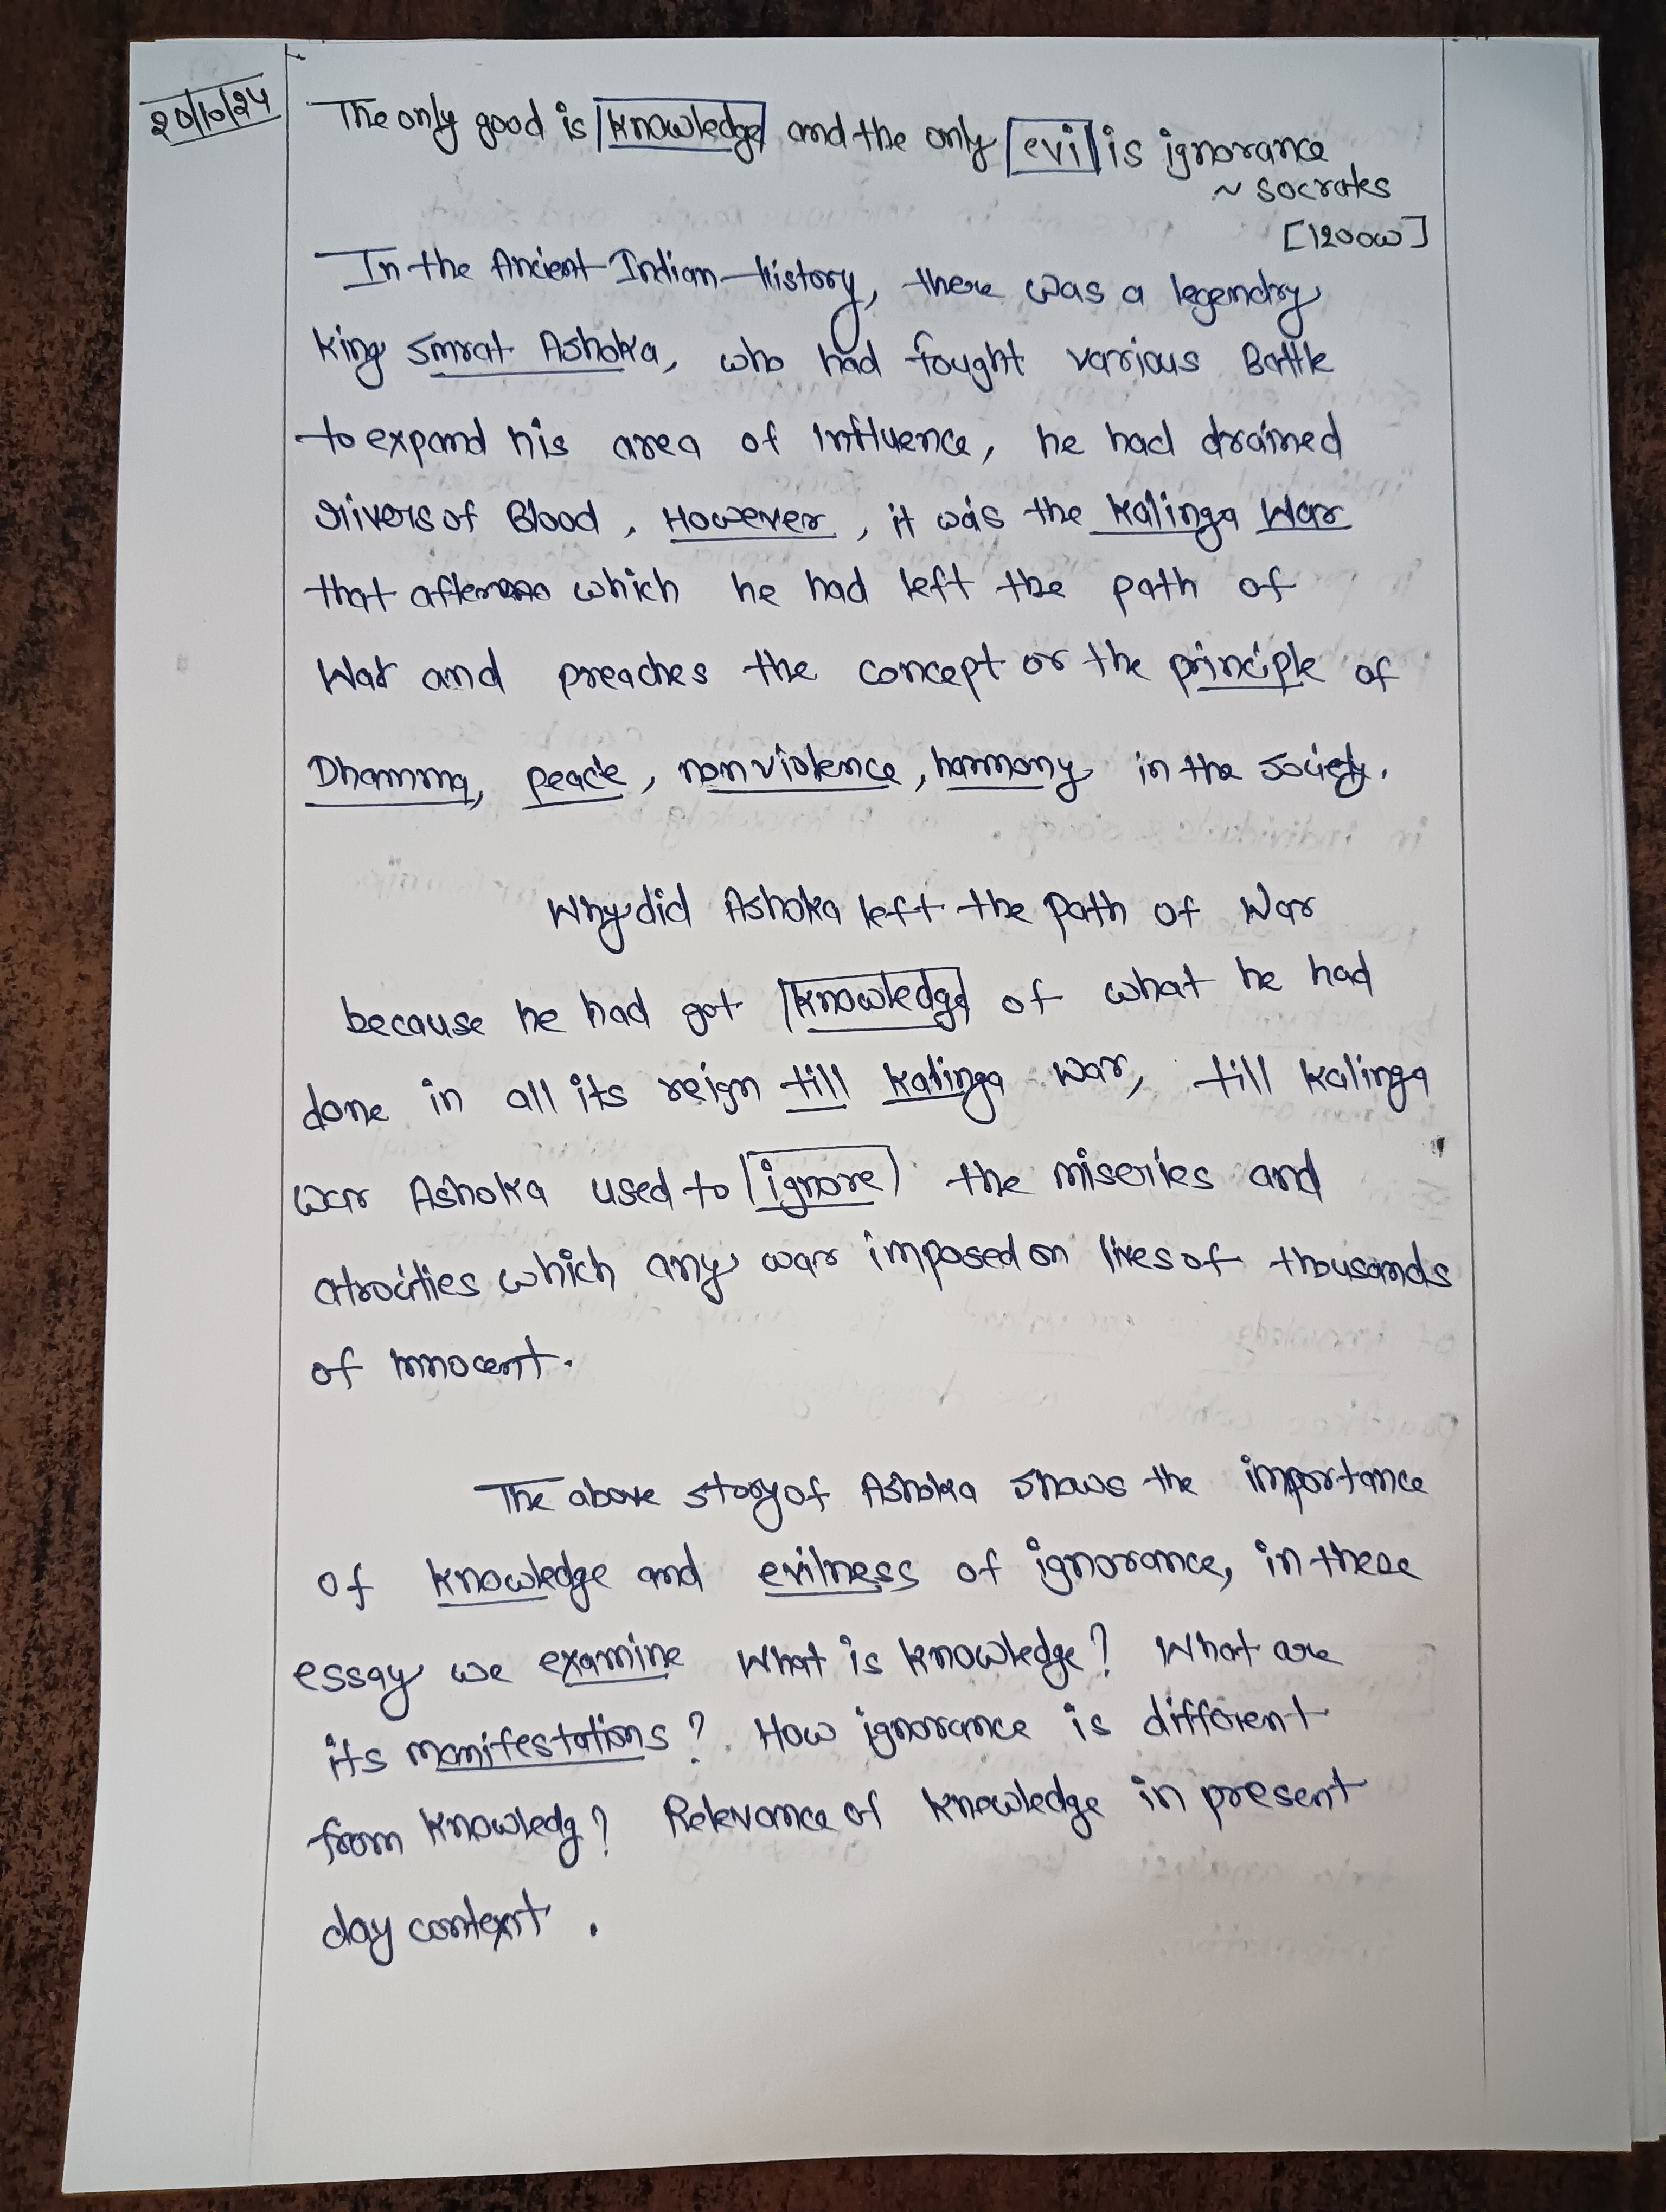 20/10/24
The only good is knowledge and the only evil is ignorance
~ Socrates
[1200w]
In the Ancient Indian History, there was a legendry
King Smrat Ashoka, who had fought various Battle
to expand his area of influence, he had drained
rivers of Blood, However, it was the Kalinga War
that after which he had left the path of
War and preaches the concept or the principle of
Dhamma, peace, nonviolence, harmony in the society.
Why did Ashoka left the path of War
because he had got knowledge of what he had
done in all its reign till Kalinga war, till Kalinga
war Ashoka used to ignore the miseries and
atrocities which any war imposed on lives of thousands
of innocent.
The above story of Ashoka shows the importance
of knowledge and evilness of ignorance, in these
essay we examine What is knowledge? What are
its manifestations? How ignorance is different
from knowledg? Relevance of knowledge in present
day context.